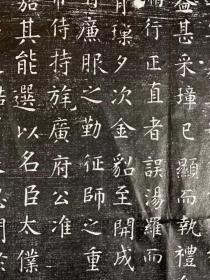 益甚采幢已顯而執禮
行正直者誤湯羅而
月琛夕次金貂至開成
有廉服之勤征師之重
侍持旄廣府公准
其能選以名臣太僕